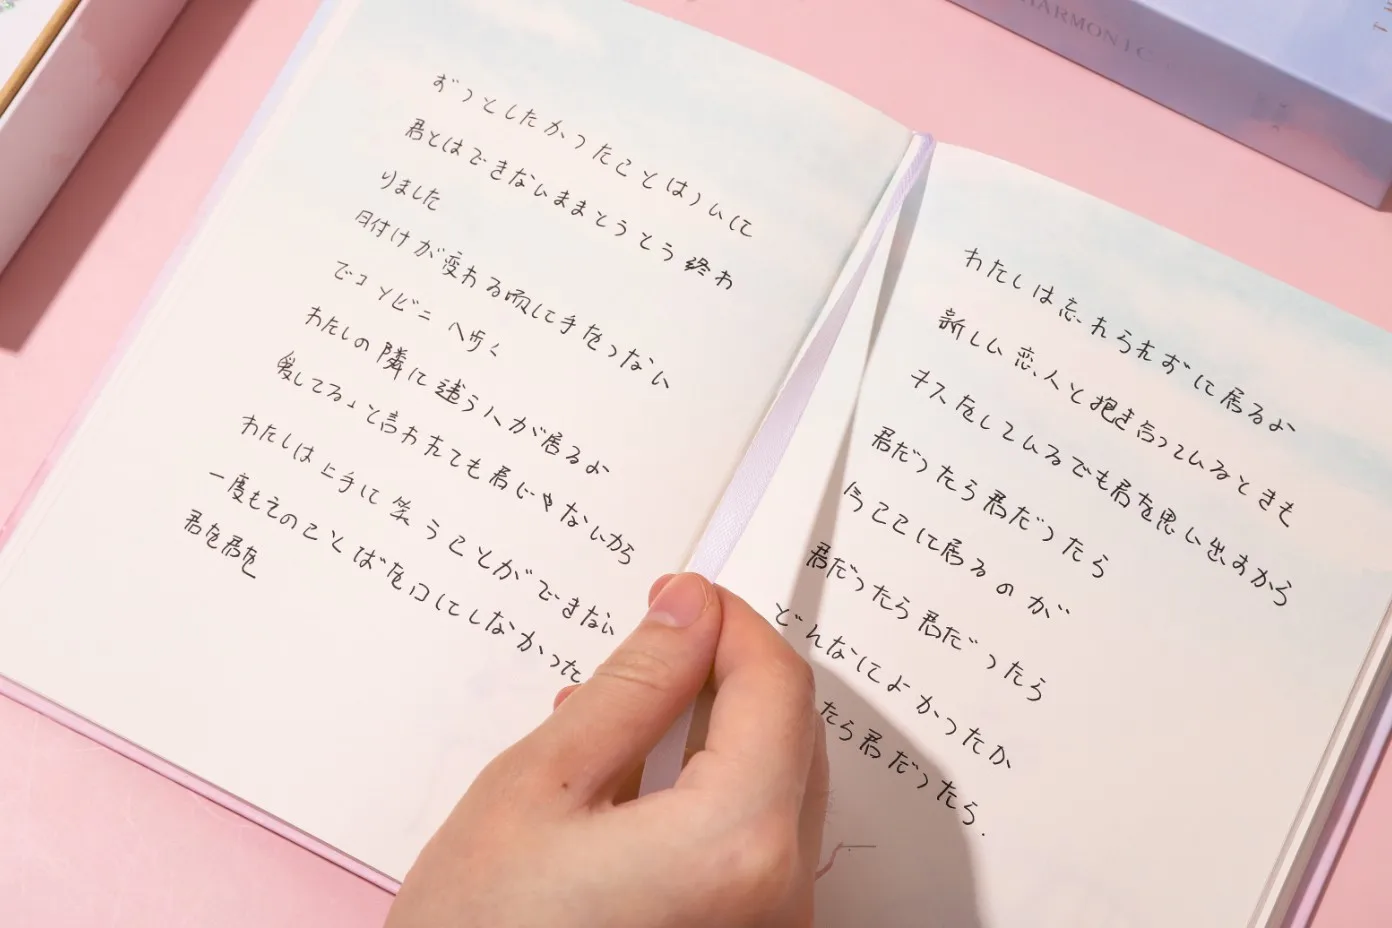 ずっとしたかったことはついに
君とはできないままとうとう終わ
りました
日付けが変わる頃して手をつない
でコンビニへ歩く
わたしの隣に違う人が居るよ
愛してるよと言われても君じゃないから
わたしは上手に笑うことができない
一度もそのことばを口にしなかった
君を君を
わたしは忘れられずに居るよ
新しい恋人と抱き合っているときも
キスをしているでも君を思い出すから
君だったら君だったら
今ここに居るのが
君だったら君だったら
どんなによかったか
たら君だったら.
HARMONIC